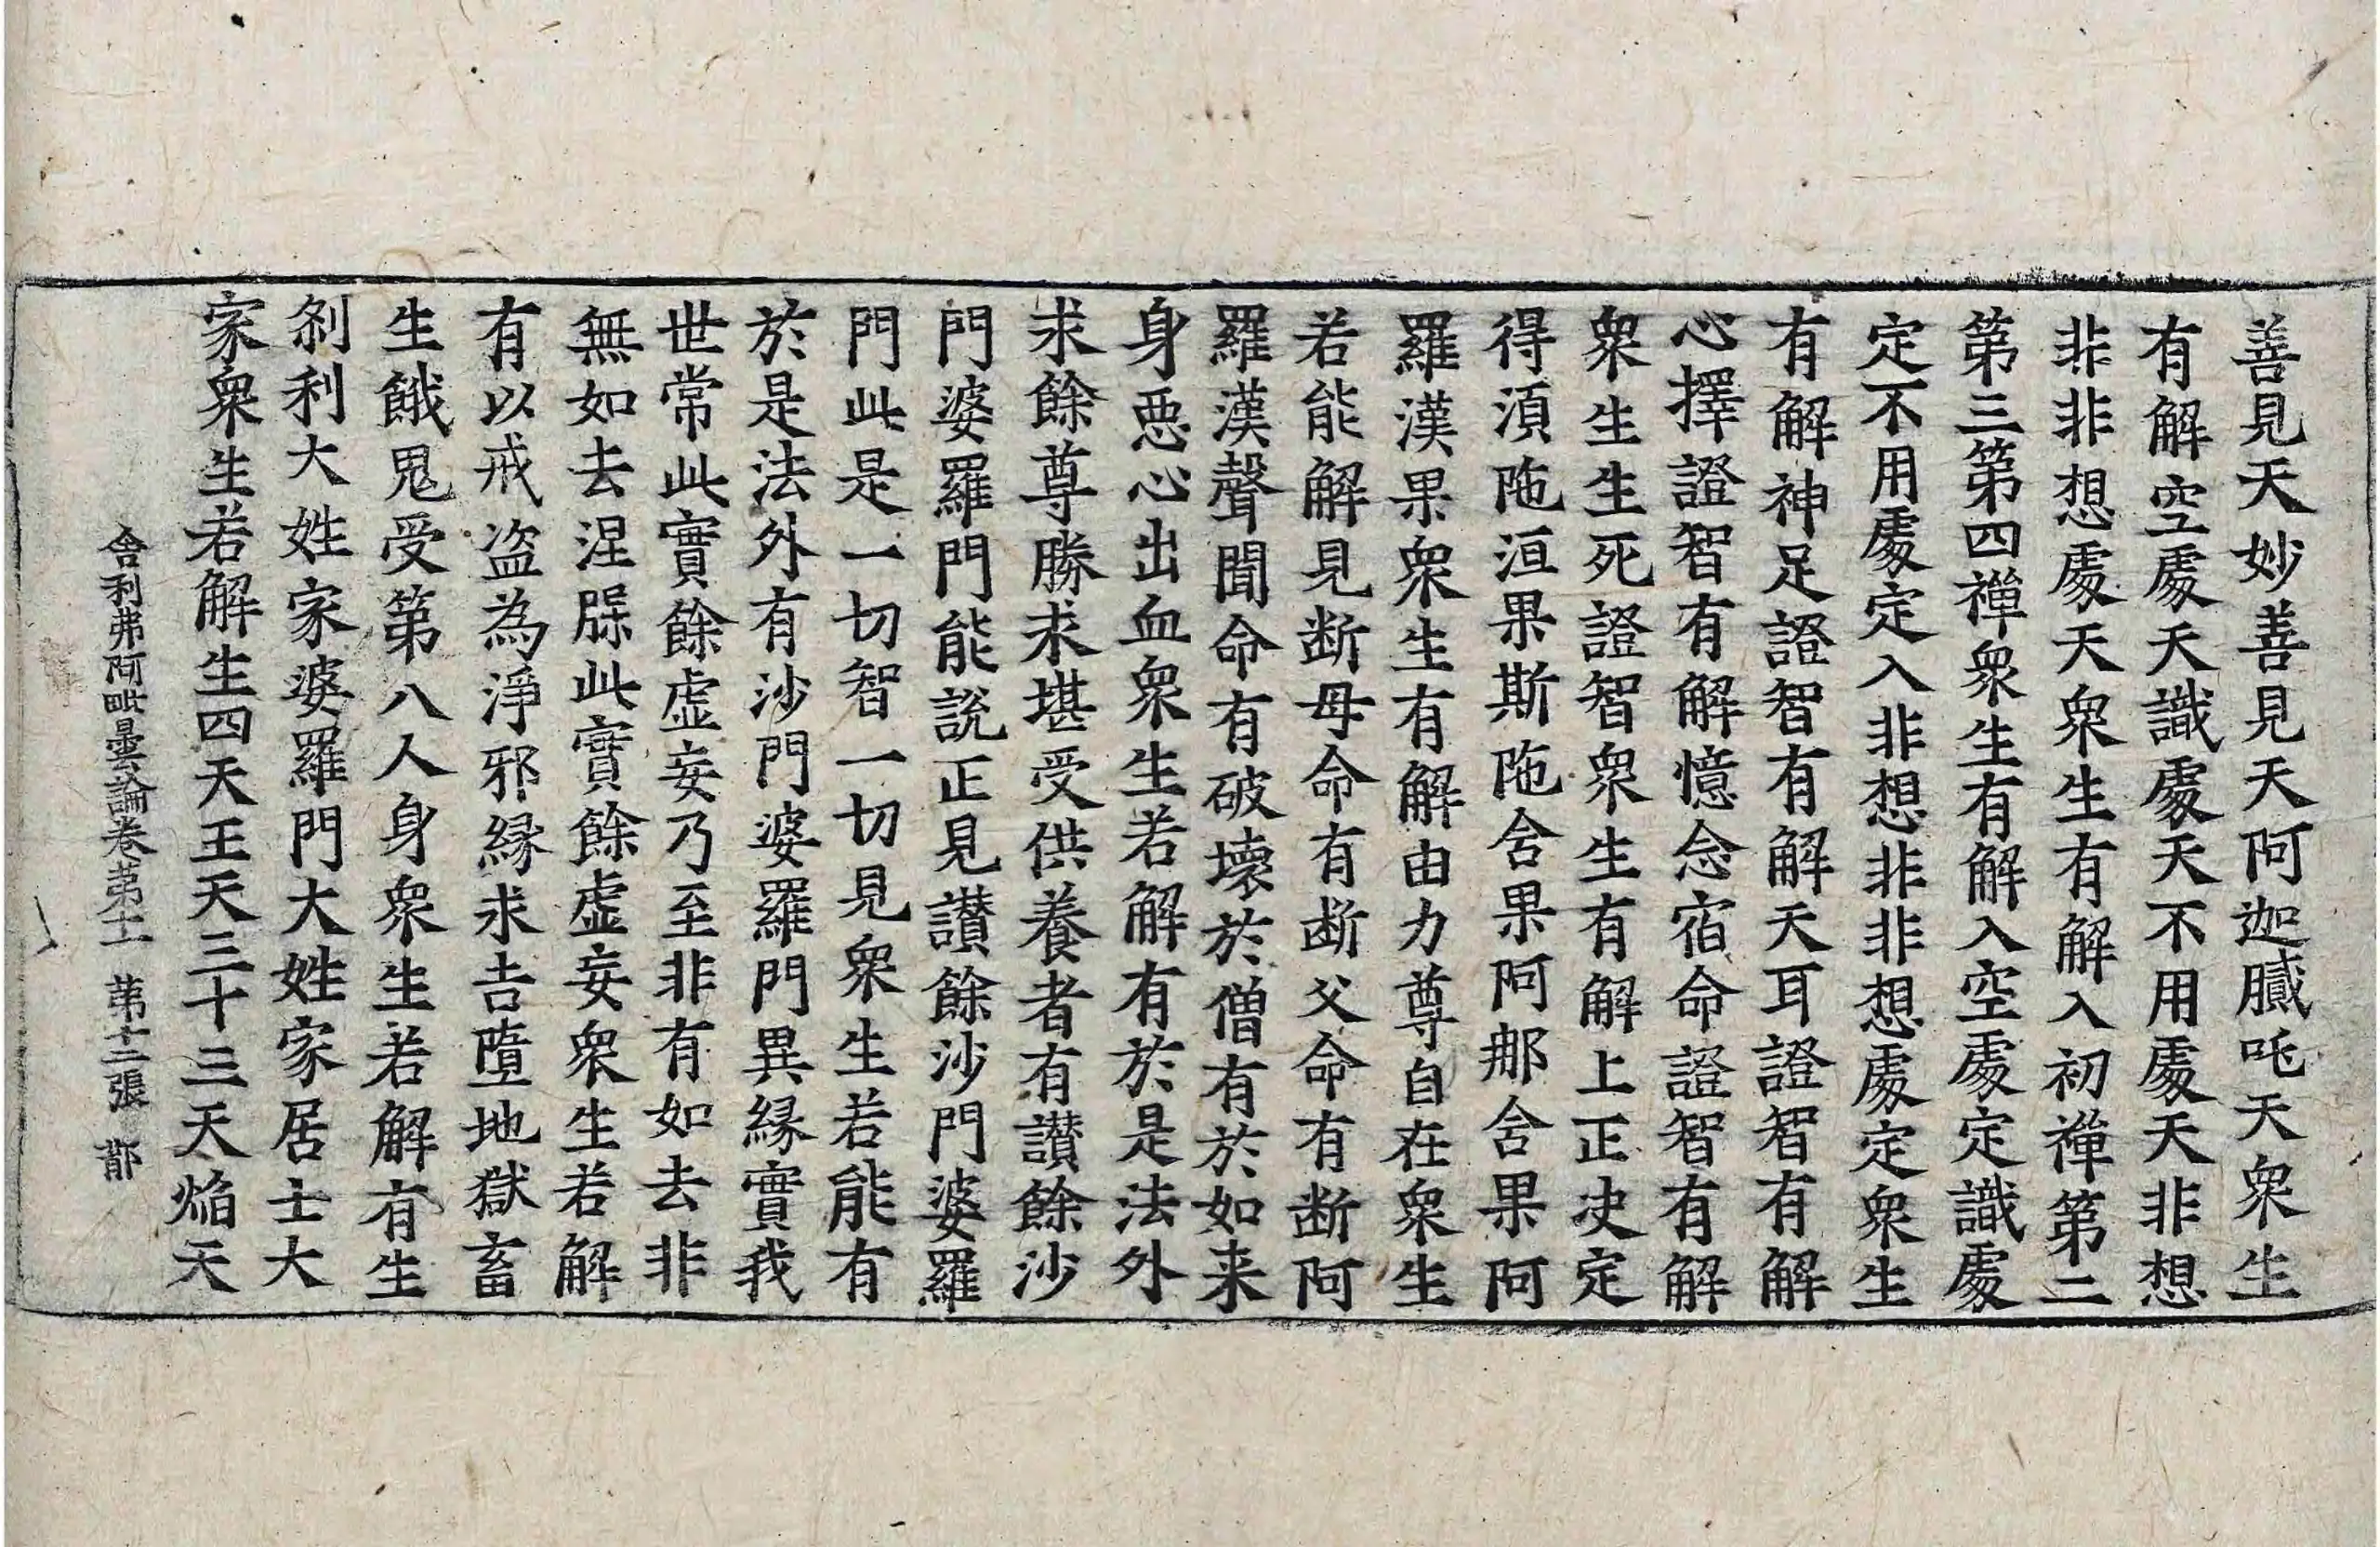 善見天妙善見天阿迦膩吒天衆生
有解空處天識處天不用處天非想
非非想處天衆生有解入初禪第二
第三第四禪衆生有解入空處定識處
定不用處定入非想非非想處定衆生
有解神足證智有解天耳證智有解
心擇證智有解憶念宿命證智有解
衆生生死證智衆生有解上正决定
得湏陁洹果斯陁含果阿那含果阿
羅漢果衆生有解由力尊自在衆生
若能解見断母命有断父命有断阿
羅漢聲聞命有破壞於僧有於如来
身惡心出血衆生若解有於是法外
求餘尊勝求堪受供養者有讃餘沙
門婆羅門能説正見讃餘沙門婆羅
門此是一切智一切見衆生若能有
於是法外有沙門婆羅門異縁實我
世常此實餘虚妄乃至非有如去非
無如去涅槃此實餘虚妄衆生若解
有以戒盗為淨邪縁求吉墮地獄畜
生餓鬼受第八人身衆生若解有生
刹利大姓家婆羅門大姓家居士大
家衆生若解生四天王天三十三天焔天
舎利弗阿毗曇論卷苐十一 苐十二張 鄁